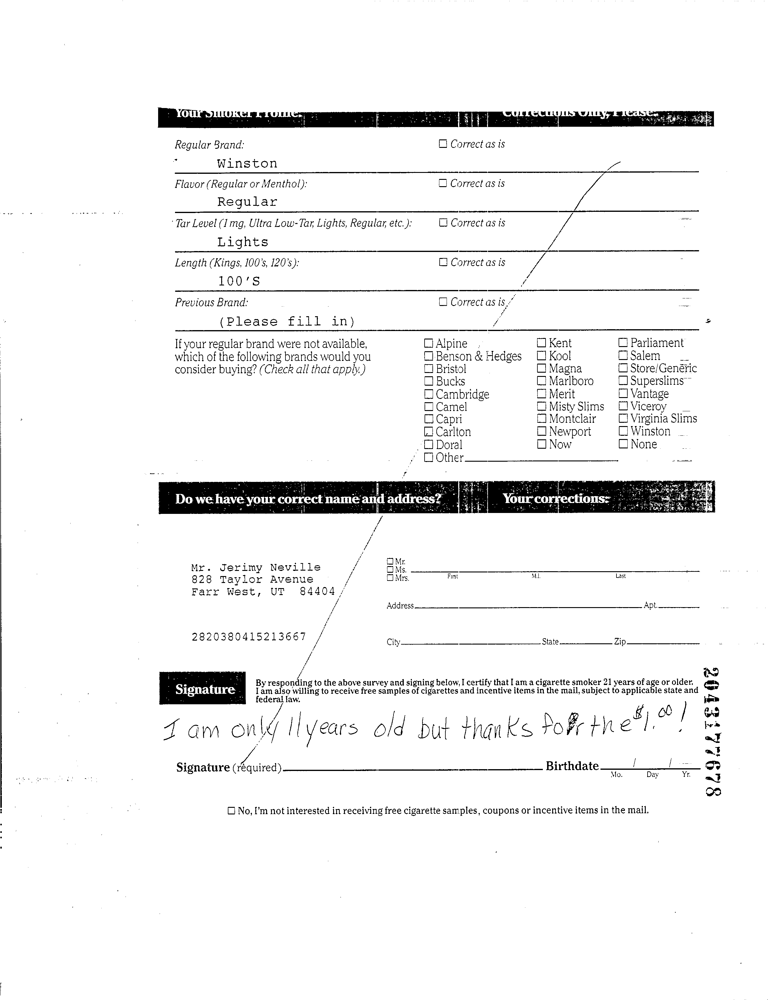 Your Smoker Profile:
Corrections Only, Please:
Regular Brand:
☐ Correct as is
Winston
Flavor (Regular or Menthol):
☐ Correct as is
Regular
Tar Level (1 mg, Ultra Low-Tar, Lights, Regular, etc.):
☐ Correct as is
Lights
Length (Kings, 100's, 120's):
☐ Correct as is
100'S
Previous Brand:
☐ Correct as is
(Please fill in)
If your regular brand were not available,
which of the following brands would you
consider buying? (Check all that apply.)
☐ Alpine
☐ Benson & Hedges
☐ Bristol
☐ Bucks
☐ Cambridge
☐ Camel
☐ Capri
☐ Carlton
☐ Doral
☐ Other
☐ Kent
☐ Kool
☐ Magna
☐ Marlboro
☐ Merit
☐ Misty Slims
☐ Montclair
☐ Newport
☐ Now
☐ Parliament
☐ Salem
☐ Store/Generic
☐ Superslims
☐ Vantage
☐ Viceroy
☐ Virginia Slims
☐ Winston
☐ None
Do we have your correct name and address?
Your corrections:
Mr. Jerimy Neville
828 Taylor Avenue
Farr West, UT 84404
2820380415213667
☐ Mr.
☐ Ms.
☐ Mrs.
First M.I. Last
Address Apt.
City State Zip
Signature
By responding to the above survey and signing below, I certify that I am a cigarette smoker 21 years of age or older.
I am also willing to receive free samples of cigarettes and incentive items in the mail, subject to applicable state and
federal law.
I am only 11 years old but thanks for the $1.00!
Signature (required) Birthdate / /
Mo. Day Yr.
☐ No, I'm not interested in receiving free cigarette samples, coupons or incentive items in the mail.
2043177678